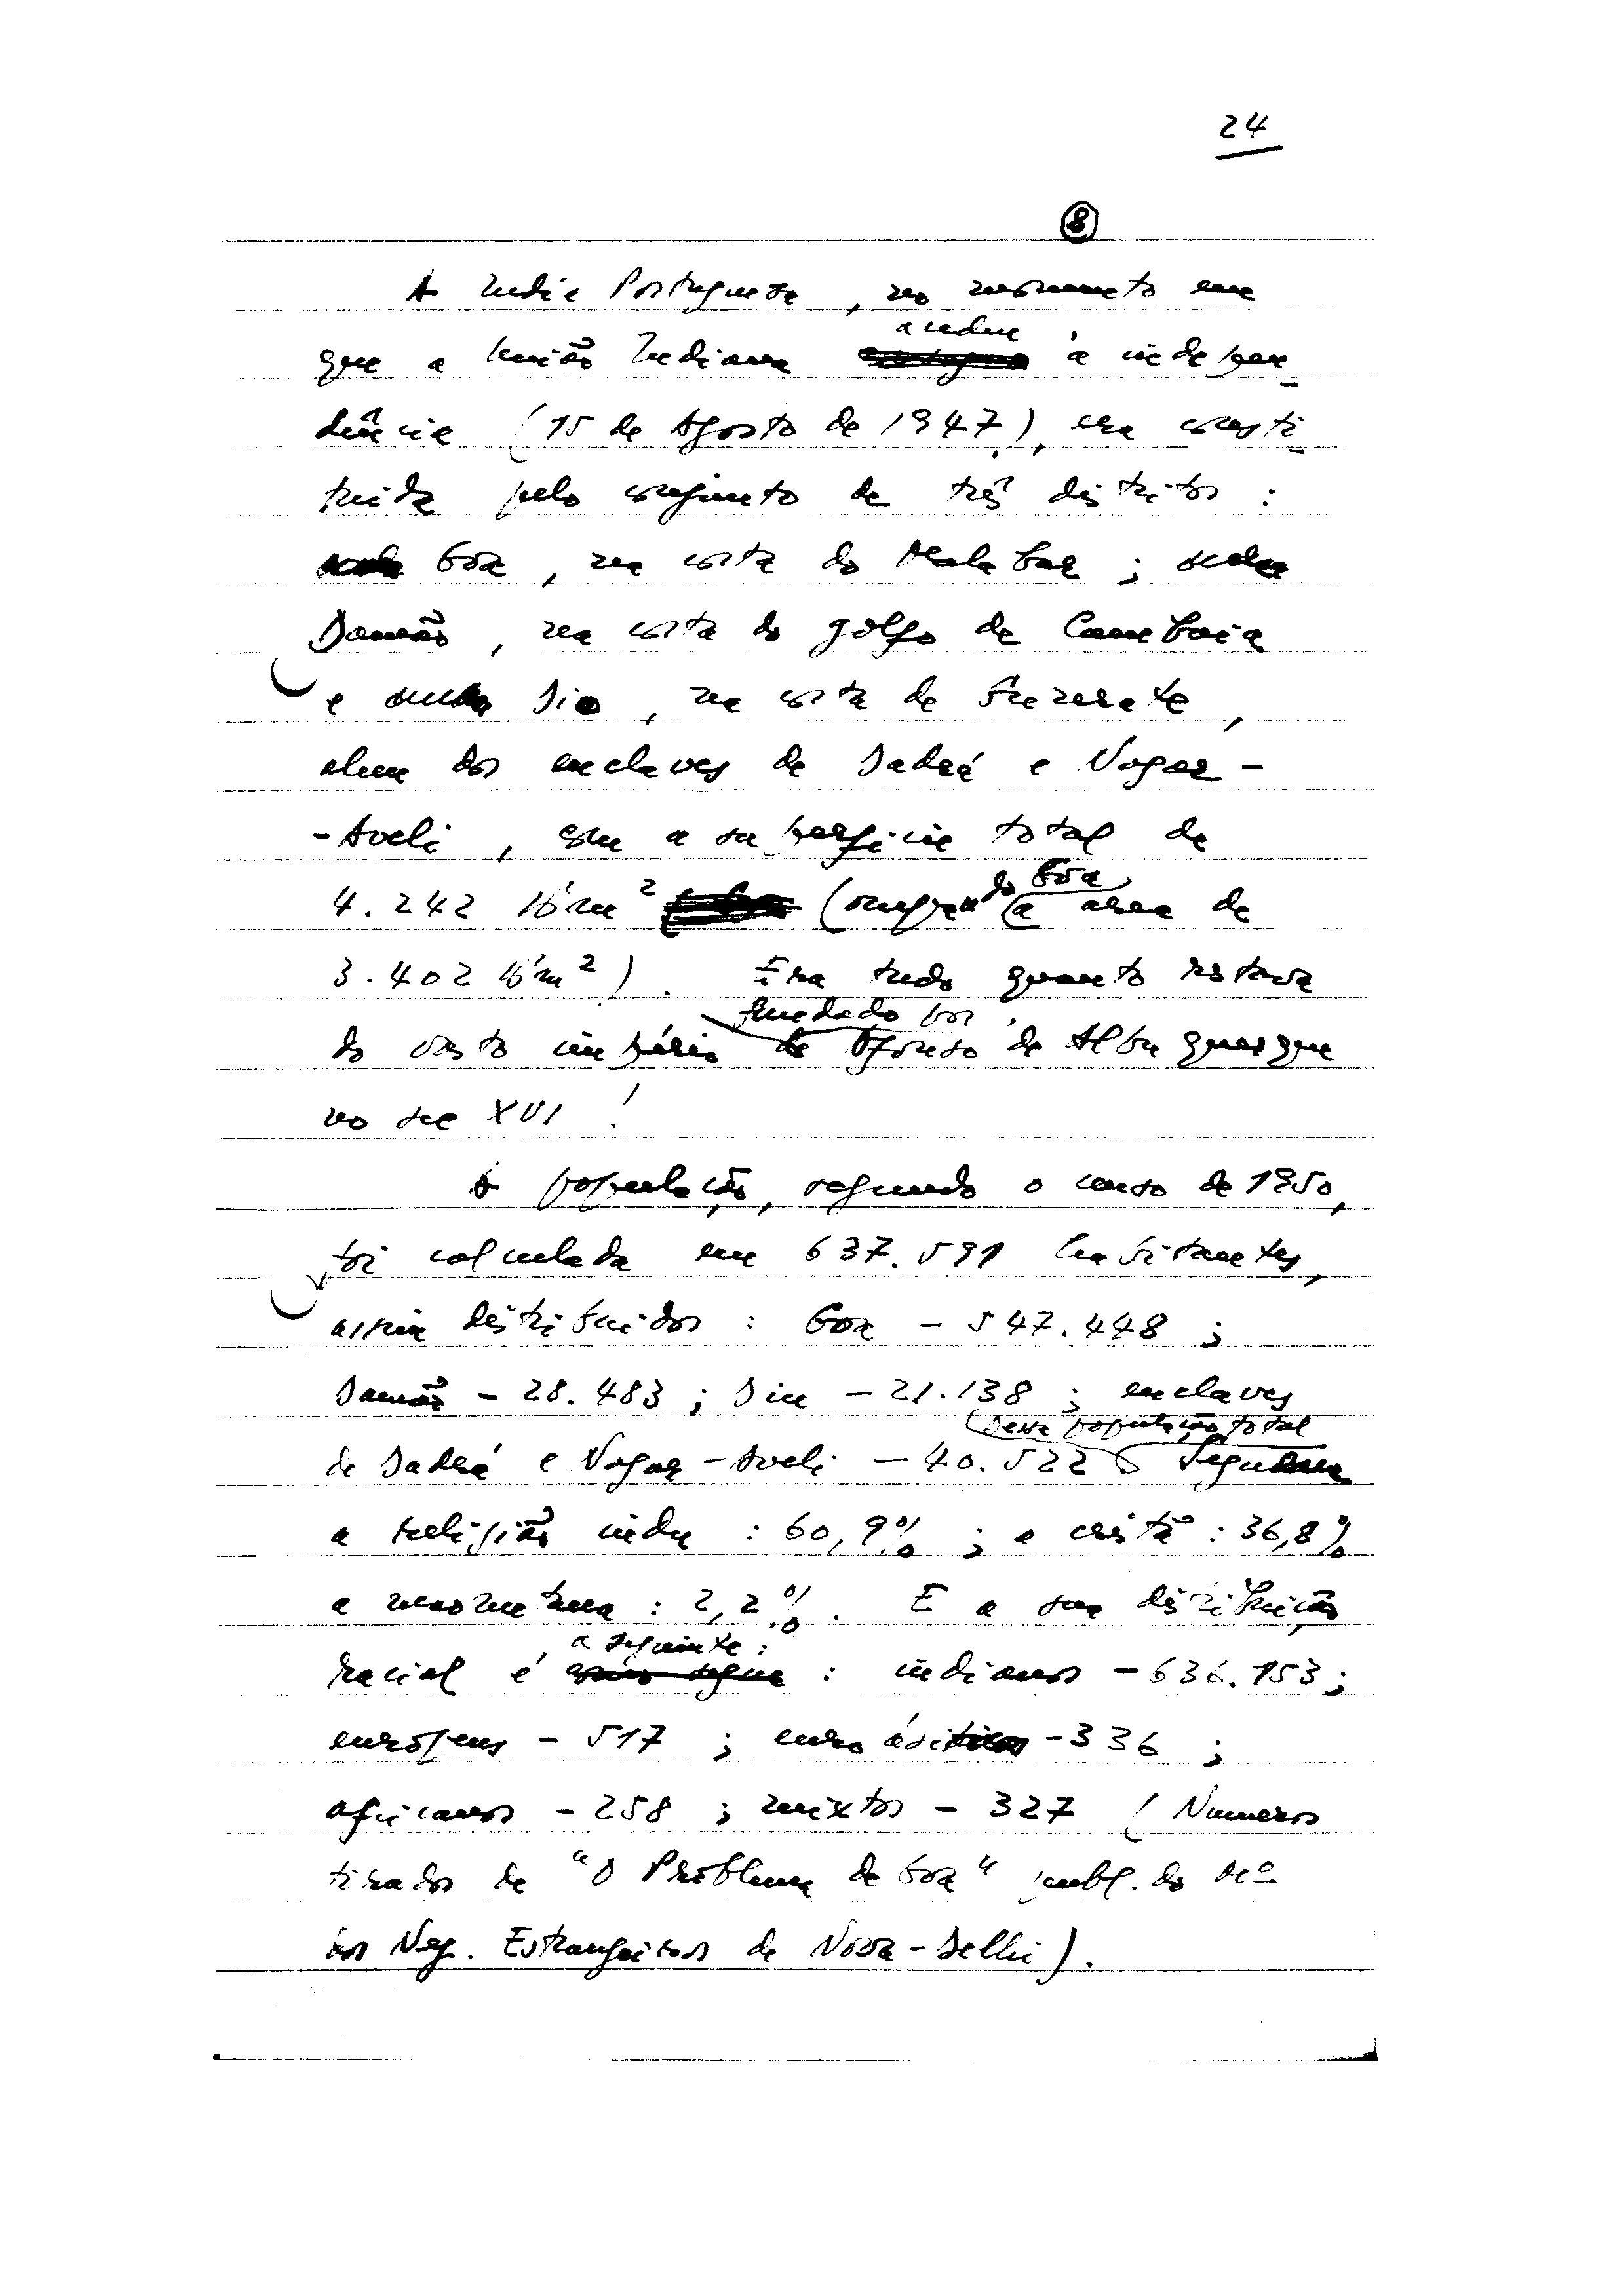 24
8
A India Portuguesa, no momento em
que a União Indiana acedeu á indepen-
dência (15 de Agosto de 1947), era consti-
tuida pelo conjunto de três distritos:
Goa, na costa do Malabar;
Damão, na costa do golfo de Cambaia
e Dio, na costa de Guzerate,
alem dos enclaves de Dadrá e Nagar-
-Aveli, com a superficie total de
4.242 Km² (ocupando Goa a area de
3.402 Km²). Era tudo quanto restava
do vasto império fundado por Afonso de Albuquerque
no sec XVI!
A população, segundo o censo de 1950,
foi calculada em 637.591 habitantes,
assim distribuidos: Goa - 547.448;
Damão - 28.483; Diu - 21.138; enclaves
de Dadrá e Nagar-Aveli - 40.522 Desta população total
a religião indu: 60,9%; a cristã: 36,8%
a maometana: 2,2%. E a sua distribuição
racial é a seguinte: : indianos - 636.153;
europeus - 517; euroásiticos - 336;
africanos - 258; mixtos - 327 (Numeros
tirados de "O Problema de Goa" publ. do Mº
dos Neg. Estrangeiros de Nova-Delhi).